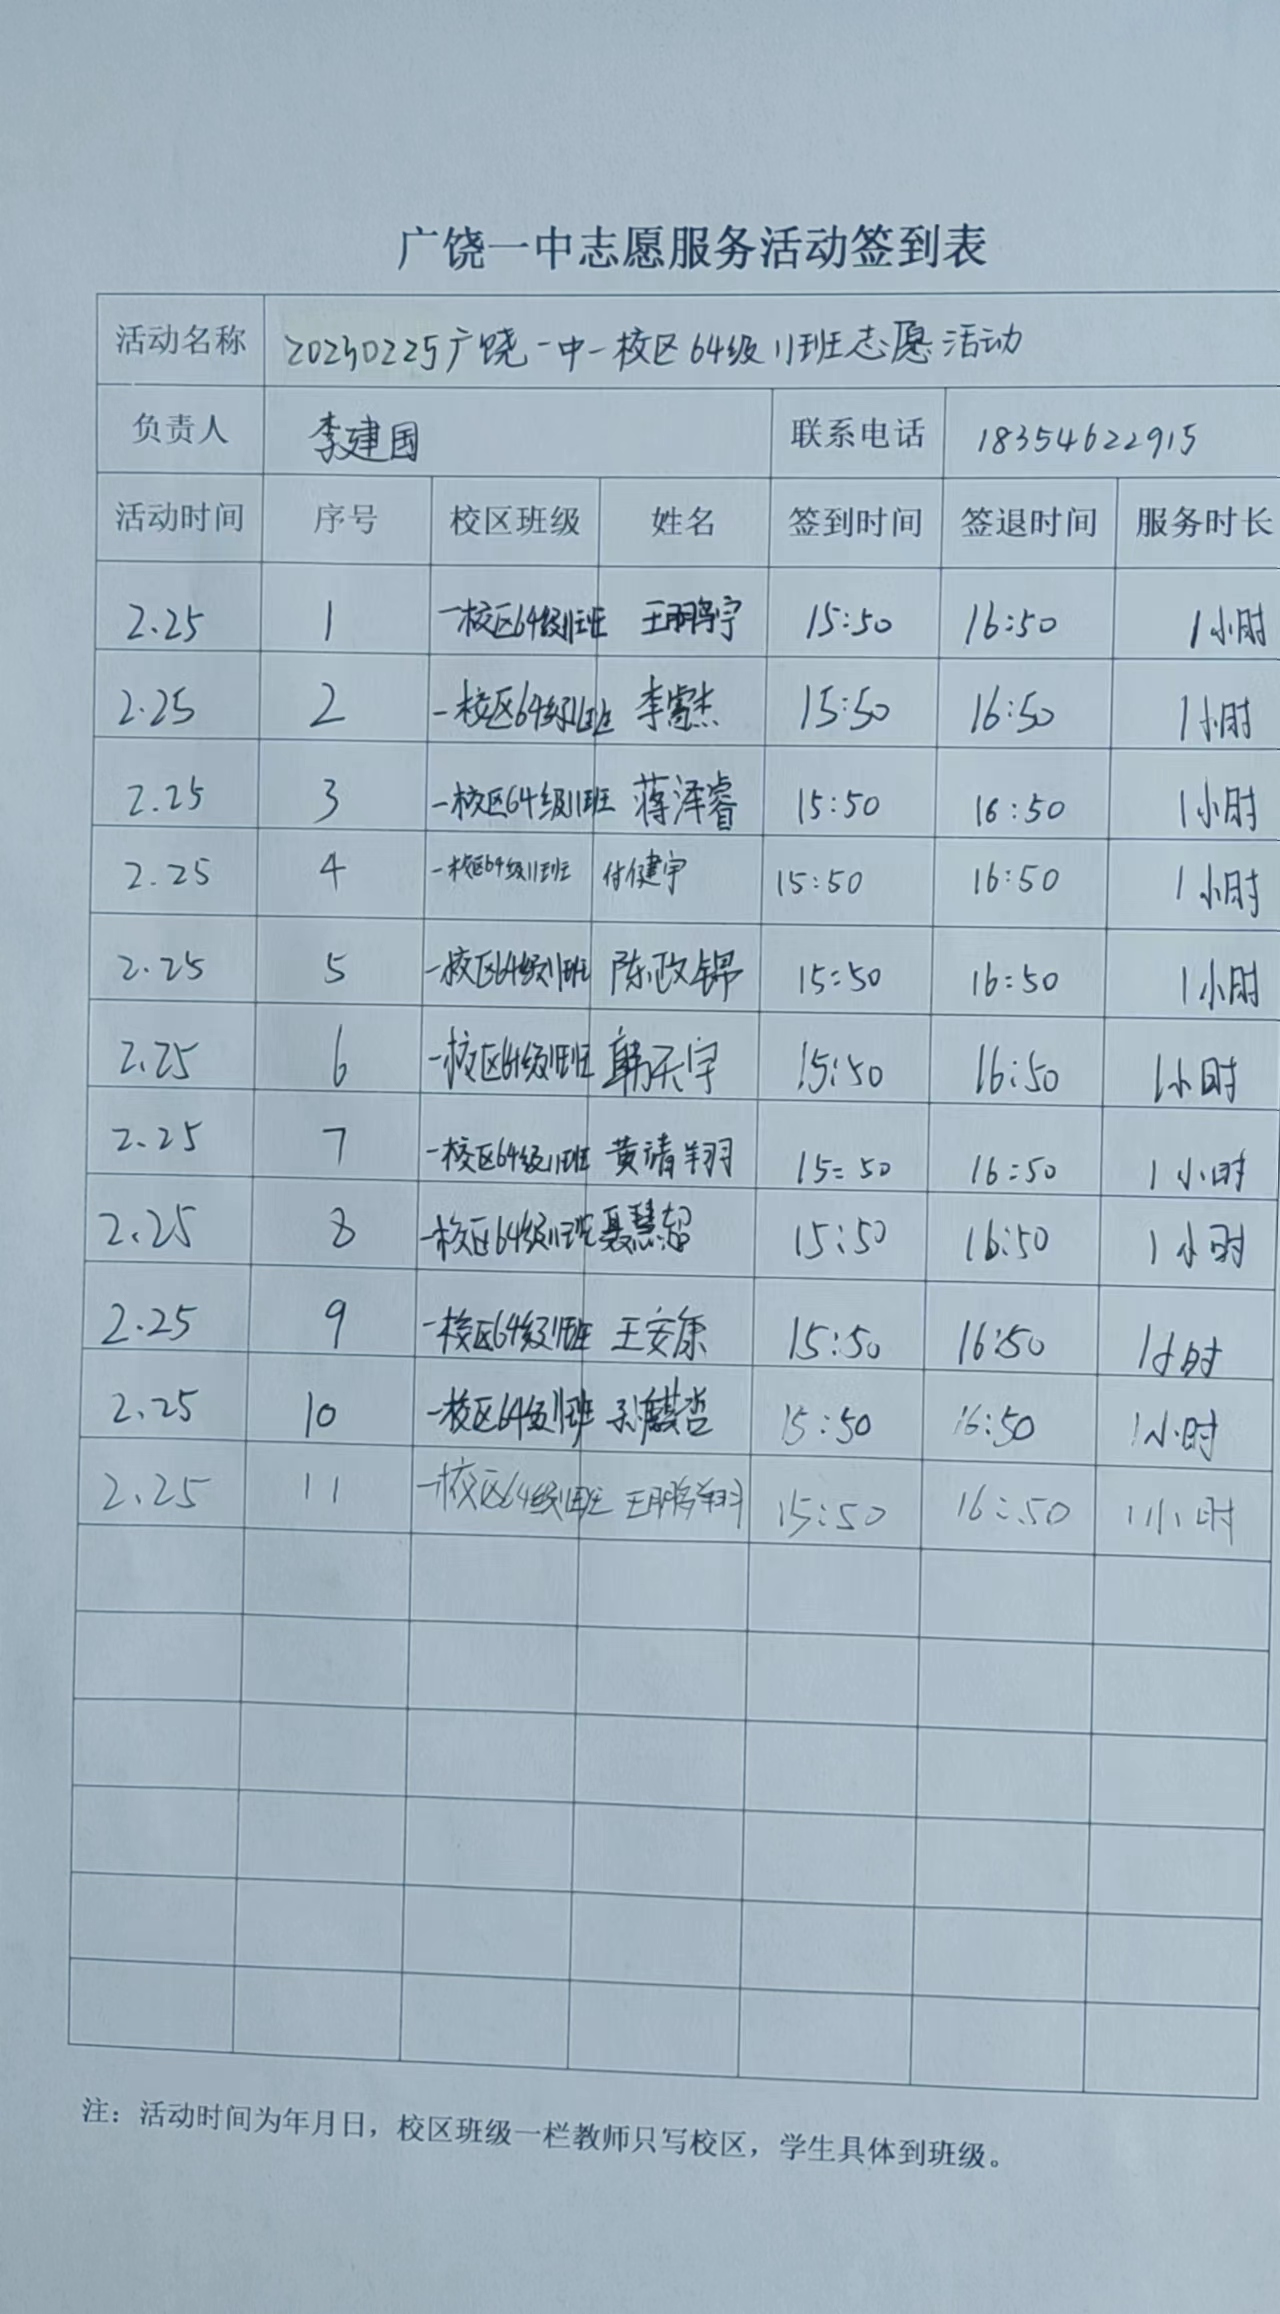 广饶一中志愿服务活动签到表
活动名称 20230225广饶一中一校区64级11班志愿活动
负责人 李建国 联系电话 18354622915
活动时间 序号 校区班级 姓名 签到时间 签退时间 服务时长
2.25 1 一校区64级11班 王鹏宇 15:50 16:50 1小时
2.25 2 一校区64级11班 李睿杰 15:50 16:50 1小时
2.25 3 一校区64级11班 蒋泽睿 15:50 16:50 1小时
2.25 4 一校区64级11班 付健宇 15:50 16:50 1小时
2.25 5 一校区64级11班 陈政锦 15:50 16:50 1小时
2.25 6 一校区64级11班 韩天宇 15:50 16:50 1小时
2.25 7 一校区64级11班 黄清翔 15:50 16:50 1小时
2.25 8 一校区64级11班 聂慧超 15:50 16:50 1小时
2.25 9 一校区64级11班 王安康 15:50 16:50 1小时
2.25 10 一校区64级11班 15:50 16:50 1小时
2.25 11 一校区64级11班 王鹏翔 15:50 16:50 1小时
注：活动时间为年月日，校区班级一栏教师只写校区，学生具体到班级。